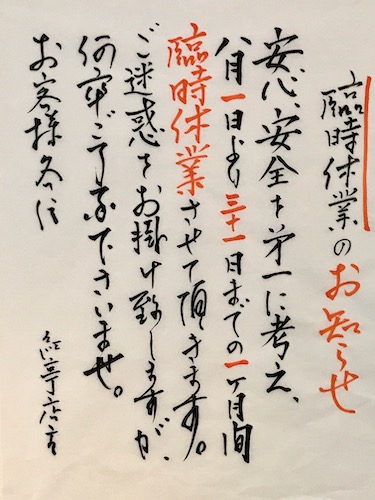 臨時休業のお知らせ
安心、安全を第一に考え、
八月一日より三十一日までの一ヶ月間
臨時休業させて頂きます。
ご迷惑をお掛け致しますが、
何卒ご了承下さいませ。
お客様各位
店主